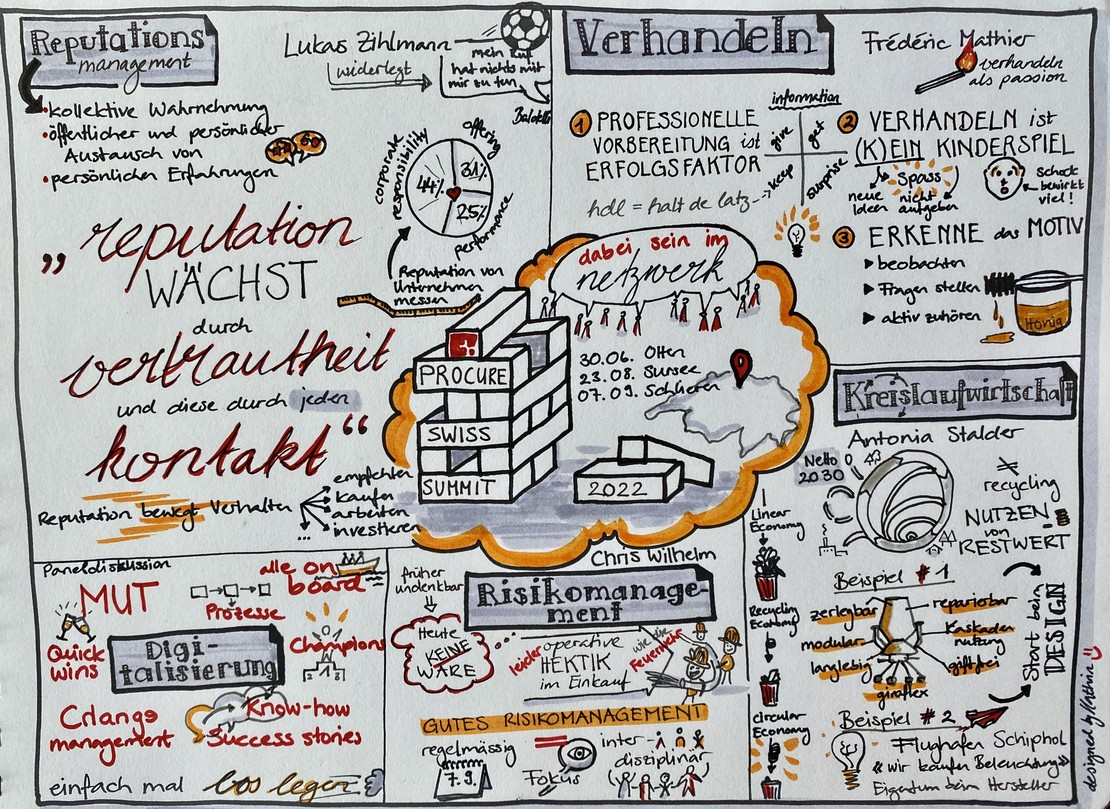 Reputations
management
Lukas Zihlmann
widerlegt
mein Ruf
hat nichts mit
mir zu tun
• kollektive Wahrnehmung
• öffentlicher und persönlicher
Austausch von
• persönlichen Erfahrungen
corporate
responsibility
offering
performance
44%
31%
25%
Reputation von
Unternehmen
messen
„reputation
WÄCHST
durch
vertrautheit
und diese durch jeden
kontakt“
Reputation bewegt Verhalten
empfehlen
kaufen
arbeiten
investieren
...
Verhandeln
Frédéric Mathier
verhandeln
als passion
1 PROFESSIONELLE
VORBEREITUNG ist
ERFOLGSFAKTOR
hdl = halt de latz
information
give
get
keep
surprise
2 VERHANDELN ist
(K)EIN KINDERSPIEL
Spass
neue
Ideen
nicht
aufgeben
bewirkt
viel!
3 ERKENNE das MOTIV
beobachten
Fragen stellen
aktiv zuhören
Honig
dabei sein im
netzwerk
30.06. Olten
23.08. Sursee
07.09. Schlieren
PROCURE
SWISS
SUMMIT
2022
Kreislaufwirtschaft
Antonia Stalder
Netto
2030
recycling
NUTZEN
von
RESTWERT
Linear
Economy
Recycling
Economy
circular
Economy
Beispiel #1
zerlegbar
modular
langlebig
reparierbar
Kaskaden
nutzung
giftfrei
giroflex
Start beim
DESIGN
Beispiel #2
Flughafen Schiphol
« wir kaufen Beleuchtung»
Eigentum beim Hersteller
designed by Kathrin
Paneldiskussion
MUT
Prozesse
alle on
board
Quick
wins
Digi-
talisierung
Champions
Change
management
Know-how
Success stories
einfach mal los legen
Chris Wilhelm
Risikomanage-
ment
früher
undenkbar
Heute
KEINE
WARE
leider operative
HEKTIK
im Einkauf
wie die
Feuerwehr
GUTES RISIKOMANAGEMENT
regelmässig
7.9.
Fokus
inter-
disziplinär